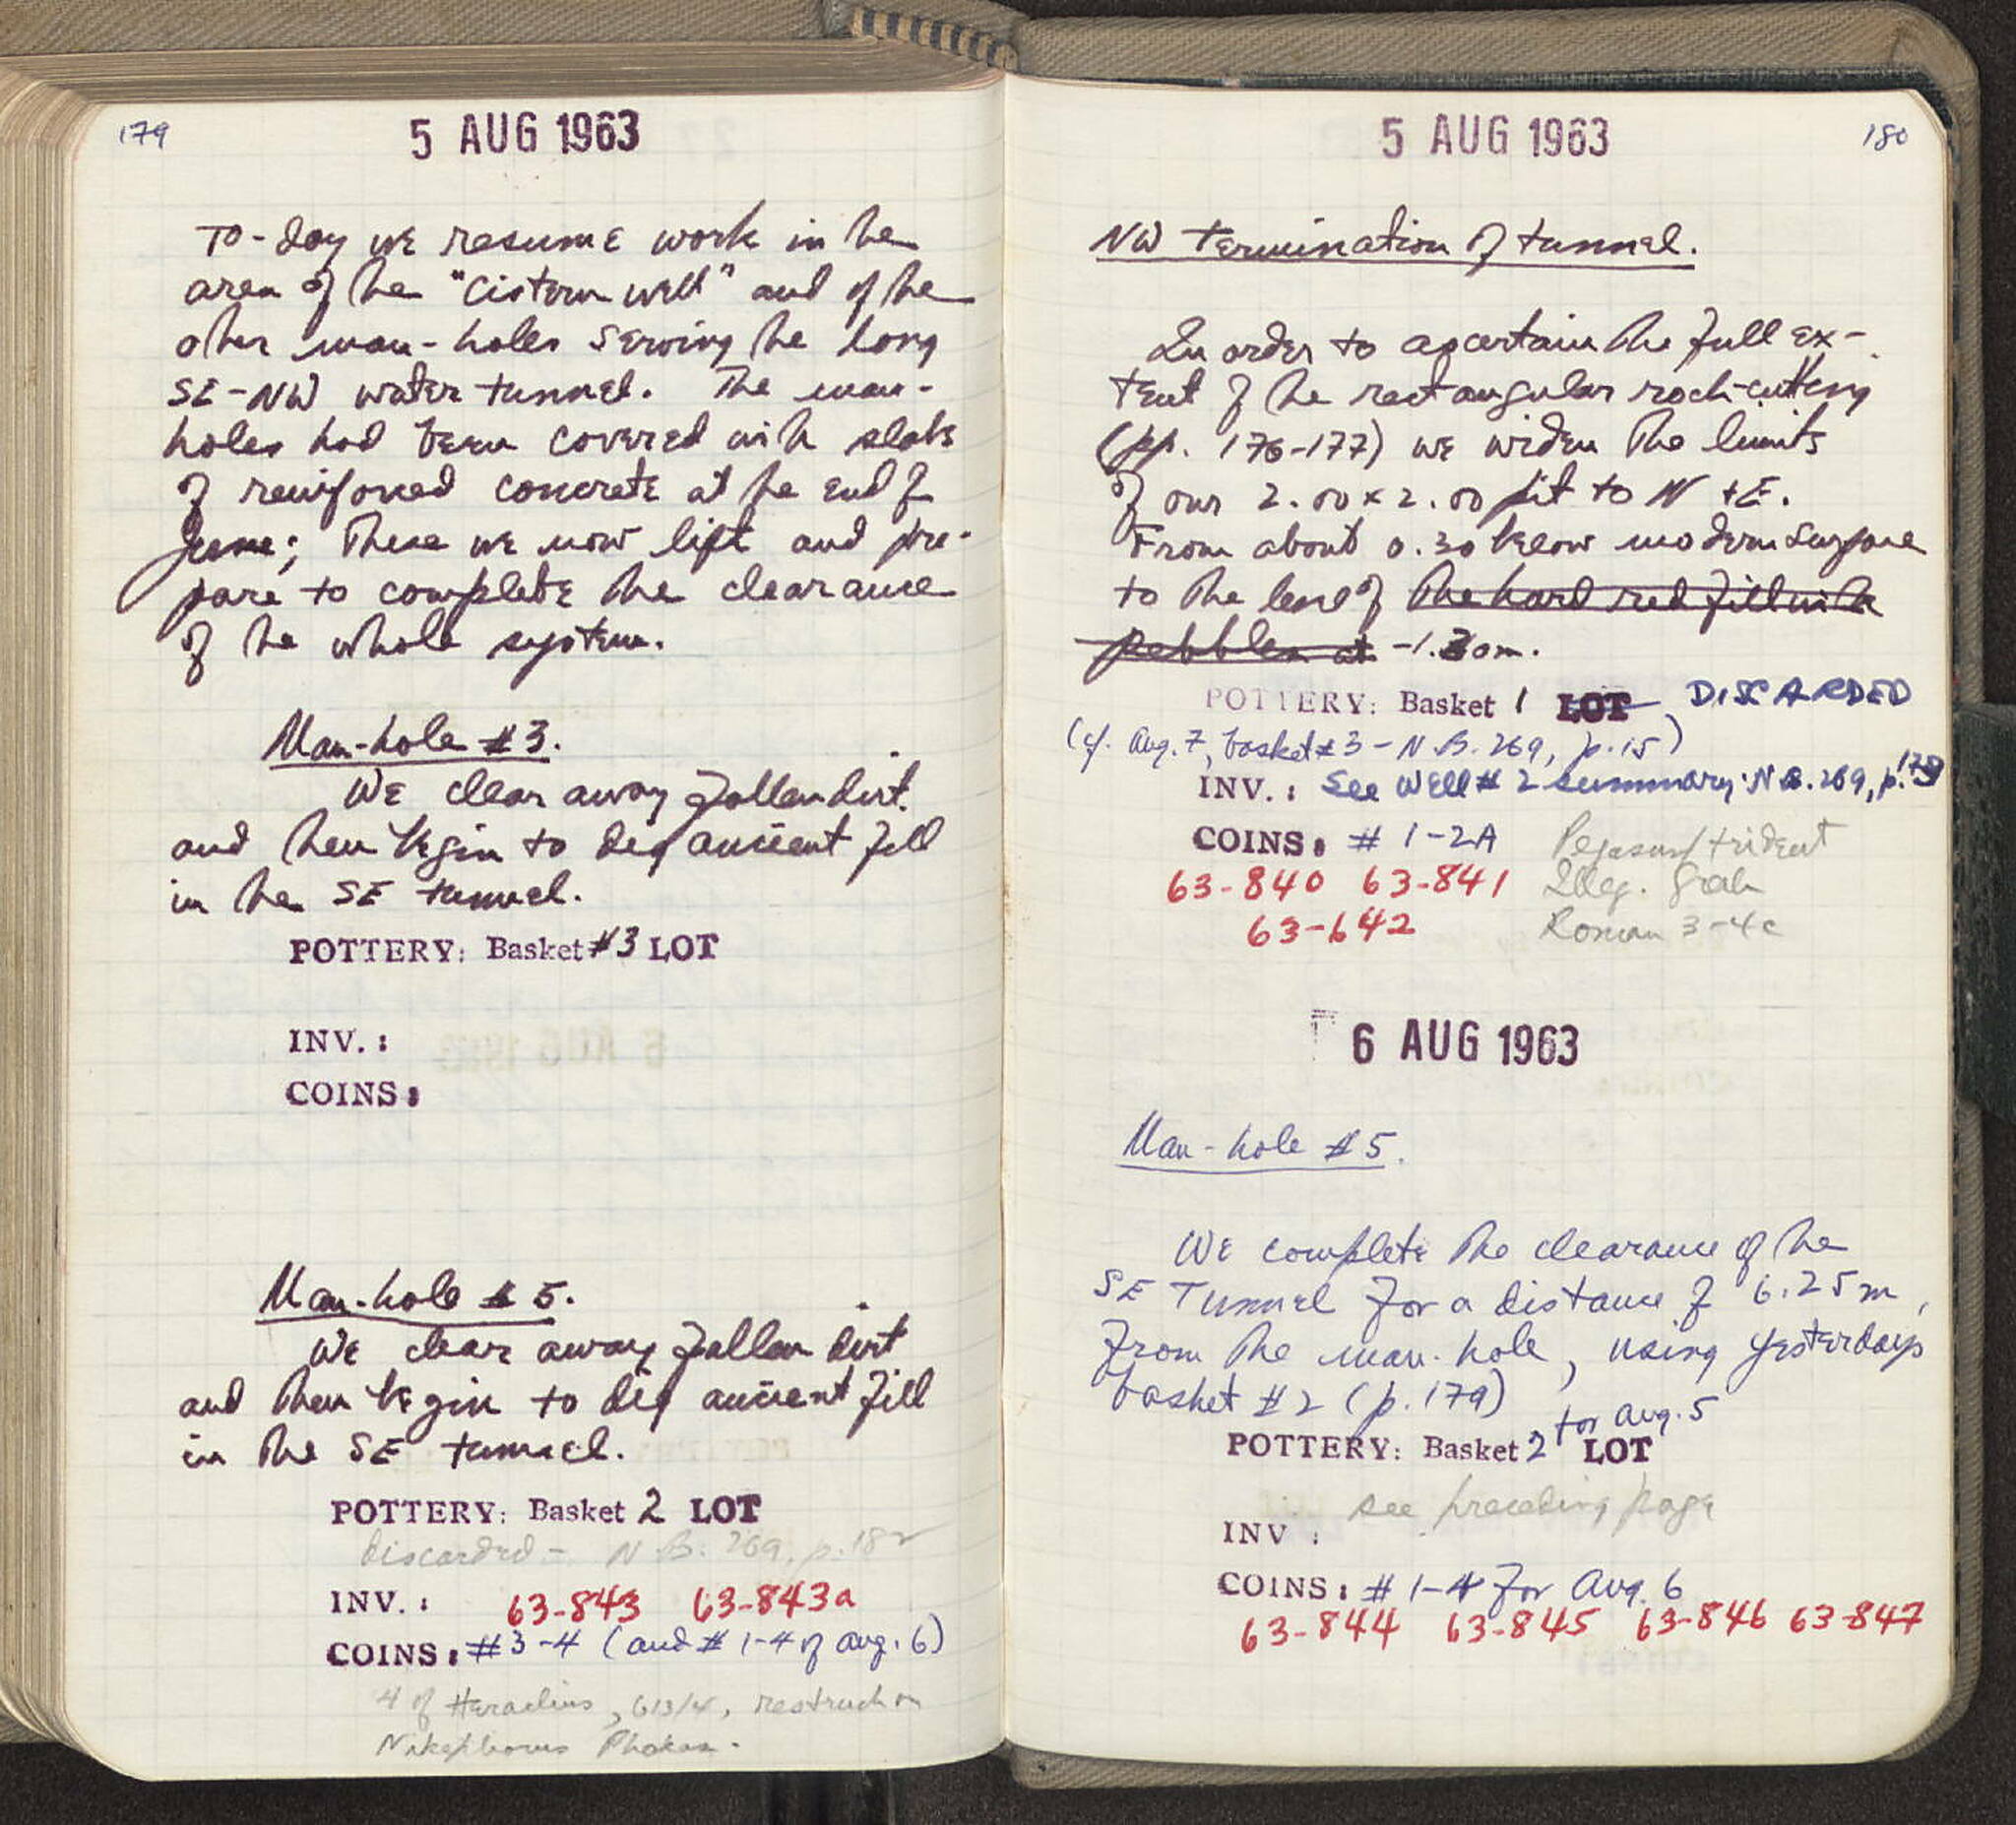 179
5 AUG 1963
To-day we resume work in the
area of the "cistern well" and of the
other man-holes serving the long
SE-NW water tunnel. The man-
holes had been covered with slabs
of reinforced concrete at the end of
June; these we now lift and pre-
pare to complete the clearance
of the whole system.
Man-hole #3.
We clear away fallen dirt
and then begin to dig ancient fill
in the SE tunnel.
POTTERY: Basket #3 LOT
INV.:
COINS:
Man-hole #5.
We clear away fallen dirt
and then begin to dig ancient fill
in the SE tunnel.
POTTERY: Basket 2 LOT
discarded - N.B. 269, p. 182
INV.: 63-843 63-843a
COINS: #3-4 (and #1-4 of Aug. 6)
4 of Heraclius, 613/4, restruck on
Nikephorus Phokas.
5 AUG 1963
180
NW termination of tunnel.
In order to ascertain the full ex-
tent of the rectangular rock-cutting
(pp. 176-177) we widen the limits
of our 2.00 x 2.00 pit to N + E.
From about 0.30 below modern surface
to the level of the hard red fill with
pebbles at -1.30m.
POTTERY: Basket 1 LOT DISCARDED
(cf. Aug. 7, basket #3 - N.B. 269, p. 15)
INV.: See Well #2 summary: N.B. 269, p.
COINS: #1-2A Pegasus/trident
63-840 63-841 Illeg. Greek
63-642 Roman 3-4c
6 AUG 1963
Man-hole #5.
We complete the clearance of the
SE Tunnel for a distance of 6.25m,
from the man-hole, using yesterdays
basket #2 (p. 179)
for Aug. 5
POTTERY: Basket 2 LOT
see preceding page
INV :
COINS: #1-4 for Aug. 6
63-844 63-845 63-846 63-847